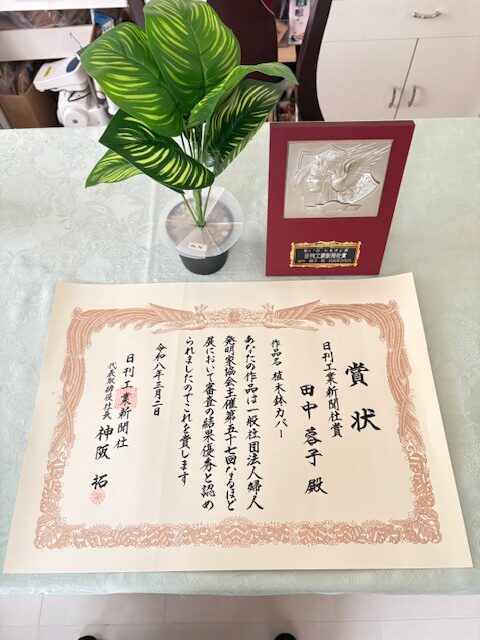 賞状
日刊工業新聞社賞
田中蓉子 殿
作品名 植木鉢カバー
あなたの作品は一般社団法人婦人
発明家協会主催第五十七回なるほど
展において審査の結果優秀と認め
られましたのでこれを賞します
令和八年三月二日
日刊工業新聞社
代表取締役社長 神阪 拓
日刊工業新聞社賞